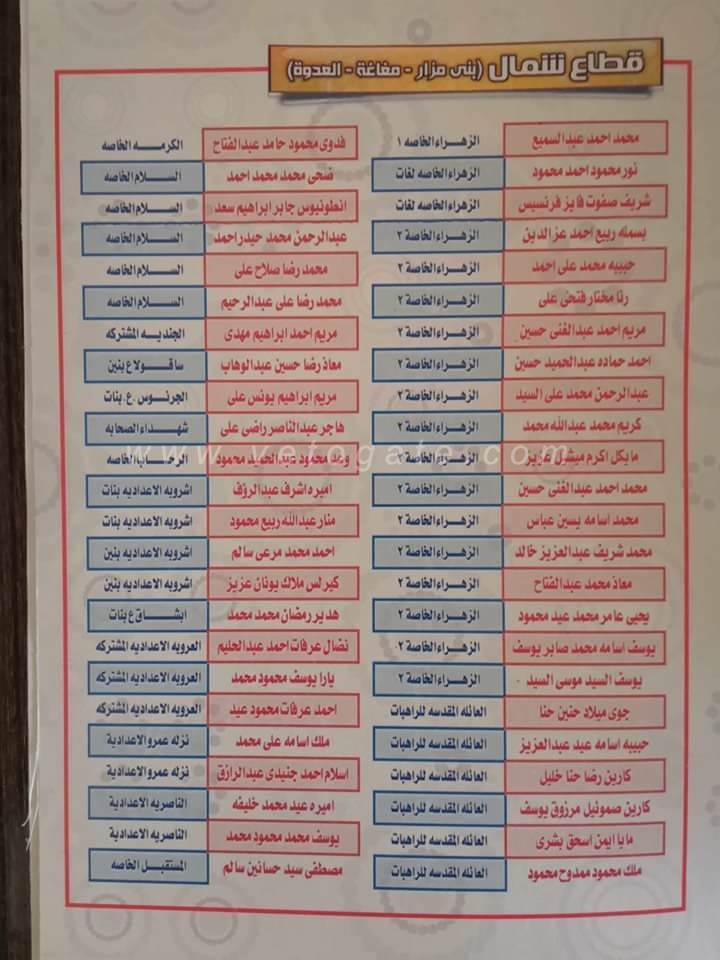 قطاع شمال (بنى مزار - مغاغة - العدوة)
محمد احمد عبدالسميع الزهراء الخاصه ١
نور محمود احمد محمود الزهراء الخاصه لغات
شريف صفوت فايز فرنسيس الزهراء الخاصه لغات
بسمله ربيع احمد عزالدين الزهراء الخاصة ٢
حبيبه محمد على احمد الزهراء الخاصة ٢
رنا مختار فتحى على الزهراء الخاصة ٢
مريم احمد عبدالغنى حسين الزهراء الخاصة ٢
احمد حماده عبدالحميد حسين الزهراء الخاصة ٢
عبدالرحمن محمد على السيد الزهراء الخاصة ٢
كريم محمد عبدالله محمد الزهراء الخاصة ٢
مايكل اكرم ميشيل عزيز الزهراء الخاصة ٢
محمد احمد عبدالغنى حسين الزهراء الخاصة ٢
محمد اسامه يسين عباس الزهراء الخاصة ٢
محمد شريف عبدالعزيز خالد الزهراء الخاصة ٢
معاذ محمد عبدالفتاح الزهراء الخاصة ٢
يحيى عامر محمد عيد محمود الزهراء الخاصة ٢
يوسف اسامه محمد صابر يوسف الزهراء الخاصة ٢
يوسف السيد موسى السيد الزهراء الخاصة ٢
جوى ميلاد حنين حنا العائله المقدسه للراهبات
حبيبه اسامه عيد عبدالعزيز العائله المقدسه للراهبات
كارين رضا حنا خليل العائله المقدسه للراهبات
كارين صموئيل مرزوق يوسف العائله المقدسه للراهبات
مايا ايمن اسحق بشرى العائله المقدسه للراهبات
ملك محمود ممدوح محمود العائله المقدسه للراهبات
فدوى محمود حامد عبدالفتاح الكرمه الخاصه
فتحى محمد محمد احمد السلام الخاصه
انطونيوس جابر ابراهيم سعد السلام الخاصه
عبدالرحمن محمد حيدر احمد السلام الخاصه
محمد رضا صلاح على السلام الخاصه
محمد رضا على عبدالرحيم السلام الخاصه
مريم احمد ابراهيم مهدى الجنديه المشتركه
معاذ رضا حسين عبدالوهاب ساقولا ع بنين
مريم ابراهيم يونس على الجرنوس .ع. بنات
هاجر عبدالناصر راضى على شهداء الصحابه
وعد محمود عبدالحميد محمود الرحاب الخاصه
اميره اشرف عبدالرؤف اشروبه الاعداديه بنات
منار عبدالله ربيع محمود اشروبه الاعداديه بنات
احمد محمد مرعى سالم اشروبه الاعداديه بنين
كيرلس ملاك يونان عزيز اشروبه الاعداديه بنين
هدير رمضان محمد محمد ابشاق ع بنات
نضال عرفات احمد عبدالحليم العروبه الاعداديه المشتركه
يارا يوسف محمود محمد العروبه الاعداديه المشتركه
احمد عرفات محمود عيد العروبه الاعداديه المشتركه
ملك اسامه على محمد نزله عمرو الاعدادية
اسلام احمد جنيدى عبدالرازق نزله عمرو الاعدادية
اميره عيد محمد خليفه الناصريه الاعدادية
يوسف محمد محمود محمد الناصريه الاعدادية
مصطفى سيد حسانين سالم المستقبل الخاصه
www.vetogate.com